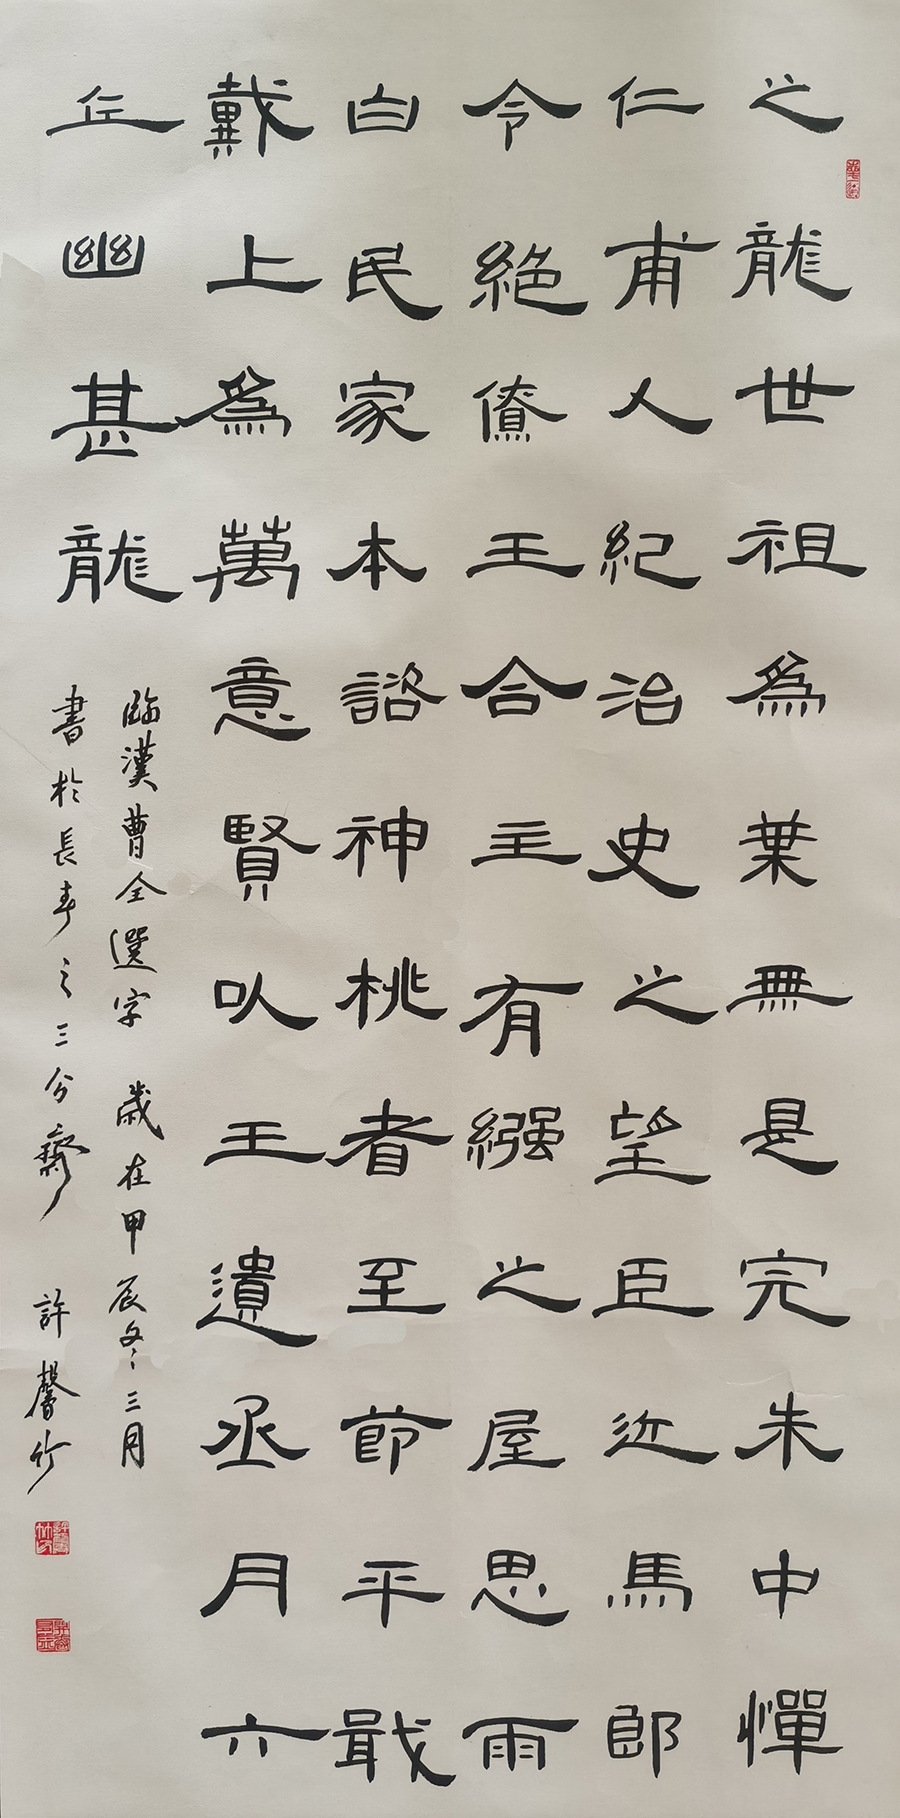 之龍世祖為葉無是完朱中憚
仁甫人紀治史之望臣近馬郎
令絕僚王合主有繈之屋思雨
白民家本諮神桃者至節平戢
戴上為萬意賢以王遺丞月六
丘幽甚龍
臨漢曹全選字 歲在甲辰冬三月
書於長春之三兮齋 許馨竹